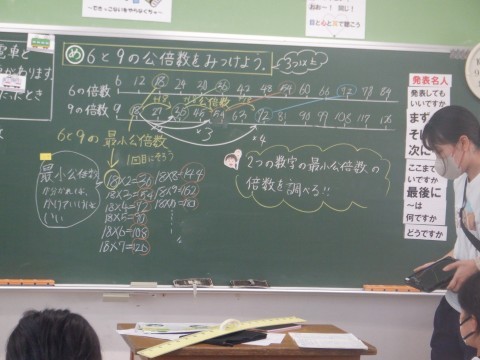 ～できっこないをやらなくちゃ～
おおー！ 同じ！
目と心と耳で聴こう
め 6と9の公倍数をみつけよう。
3つ以上
6の倍数 6 12 18 24 30 36 42 48 54 60 66 72 78 84
公倍数
9の倍数 9 18 27 36 45 54 63 72 81 90 99 108 117 126
×3
×4
6と9の最小公倍数
1回目にそろう
最小公倍数
18×2=36
18×3=54
18×4=72
18×5=90
18×6=108
18×7=126
18×8=144
18×9=162
2つの数字の最小公倍数の
倍数を調べる!!
発表名人
発表しても
いいですか
まず
次に
ここまで
いいですか
最後に
～は
何ですか
どうですか